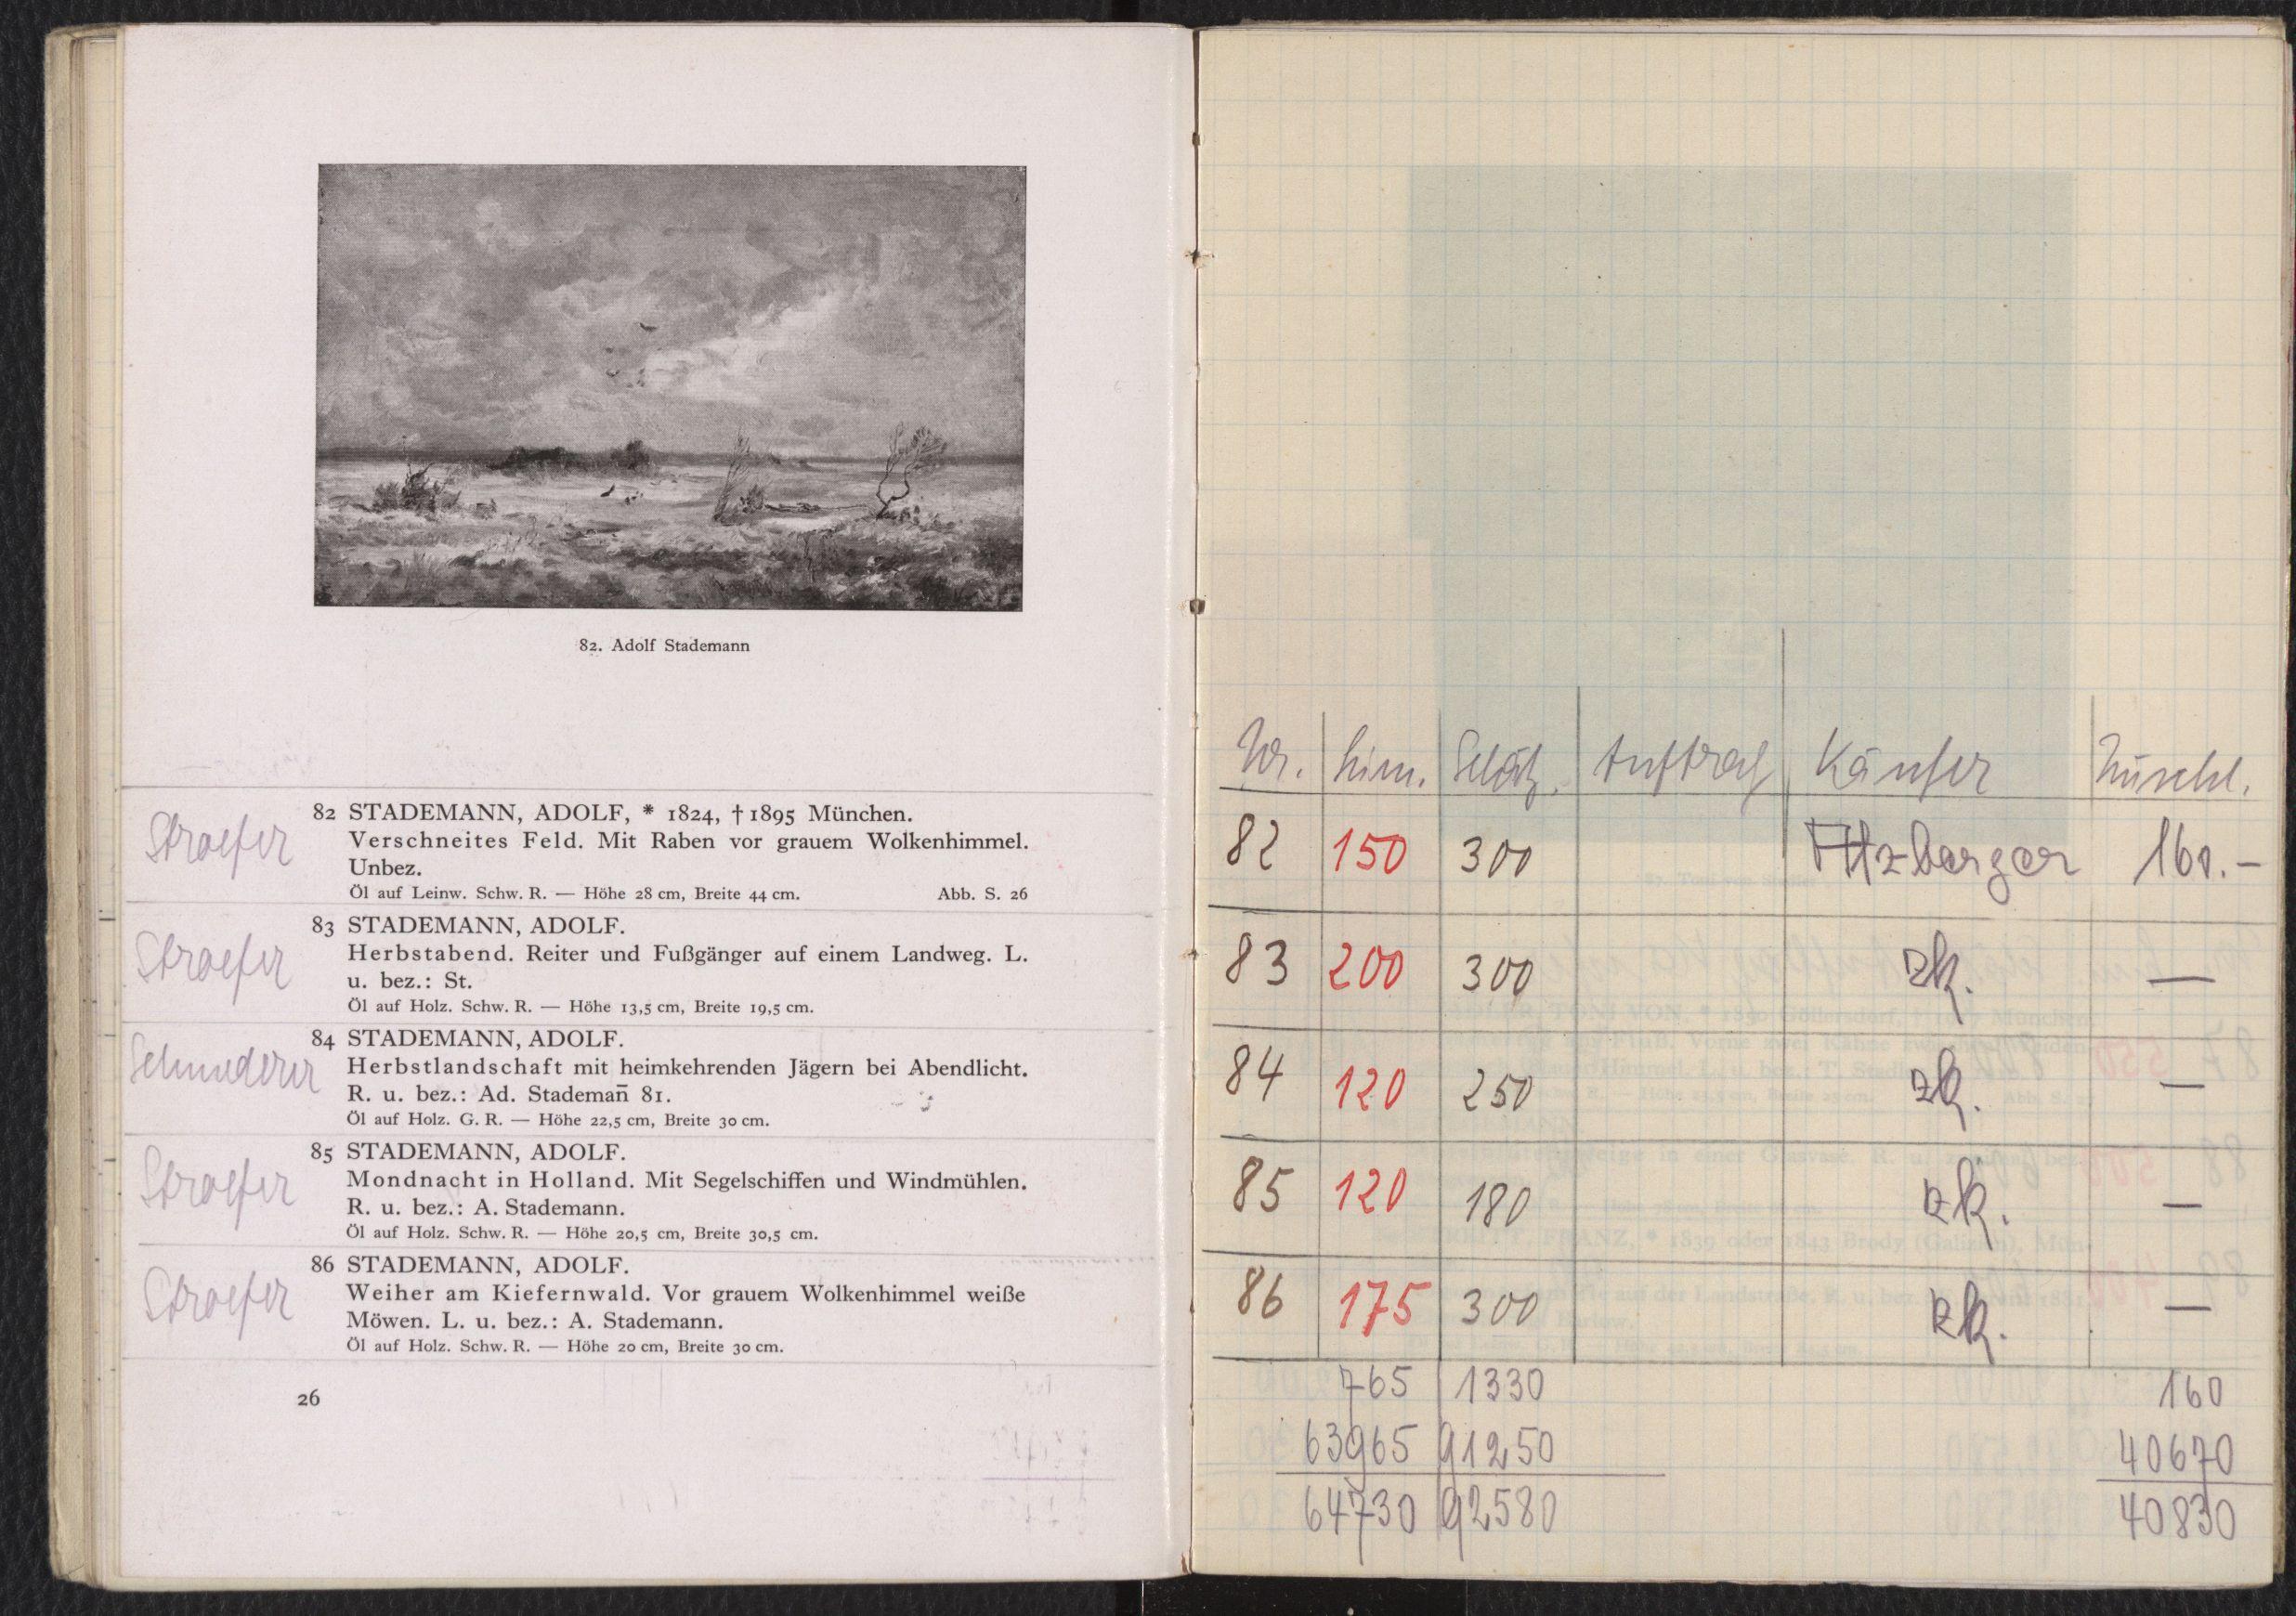 82. Adolf Stademann
Stroefer
82 STADEMANN, ADOLF, * 1824, † 1895 München.
Verschneites Feld. Mit Raben vor grauem Wolkenhimmel.
Unbez.
Öl auf Leinw. Schw. R. — Höhe 28 cm, Breite 44 cm. Abb. S. 26
Stroefer
83 STADEMANN, ADOLF.
Herbstabend. Reiter und Fußgänger auf einem Landweg. L.
u. bez.: St.
Öl auf Holz. Schw. R. — Höhe 13,5 cm, Breite 19,5 cm.
Schmederer
84 STADEMANN, ADOLF.
Herbstlandschaft mit heimkehrenden Jägern bei Abendlicht.
R. u. bez.: Ad. Stademan̄ 81.
Öl auf Holz. G. R. — Höhe 22,5 cm, Breite 30 cm.
Stroefer
85 STADEMANN, ADOLF.
Mondnacht in Holland. Mit Segelschiffen und Windmühlen.
R. u. bez.: A. Stademann.
Öl auf Holz. Schw. R. — Höhe 20,5 cm, Breite 30,5 cm.
Stroefer
86 STADEMANN, ADOLF.
Weiher am Kiefernwald. Vor grauem Wolkenhimmel weiße
Möwen. L. u. bez.: A. Stademann.
Öl auf Holz. Schw. R. — Höhe 20 cm, Breite 30 cm.
26
Nr. Lim. Schätz. Auftrag Käufer Zuschl.
82 150 300 Atzberger 160.-
83 200 300 zk. —
84 120 250 zk. —
85 120 180 zk. —
86 175 300 zk. —
765 1330 160
63965 91250 40670
64730 92580 40830